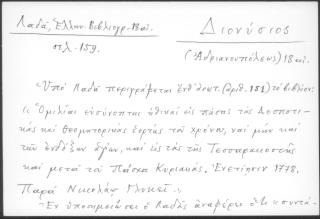 Λαδᾶ, Ἑλλην. Βιβλιογρ. 18 αἰ.
σελ. 159.
Διονύσιος
(Ἀδριανουπόλεως) 18 αἰ.
Ὑπὸ Λαδᾶ περιγράφεται (ἀριθ. 151) τὸ βιβλίον:
"Ὁμιλίαι εὐσύνοπται ἠθικαὶ εἰς πάσας τὰς Δεσποτι-
κὰς καὶ θεομητορικὰς ἑορτὰς τοῦ χρόνου, ναὶ μὴν καὶ
τῶν ἐνδόξων ἁγίων, καὶ εἰς τὰς τῆς Τεσσαρακοστῆς
καὶ μετὰ τοῦ Πάσχα Κυριακάς. Ἐνετίησιν 1778.
Παρὰ Νικολάῳ Γλυκεῖ."
Ἐν ὑποσημειώσει ὁ Λαδᾶς ἀναφέρει ὅτι ὁ συντά-